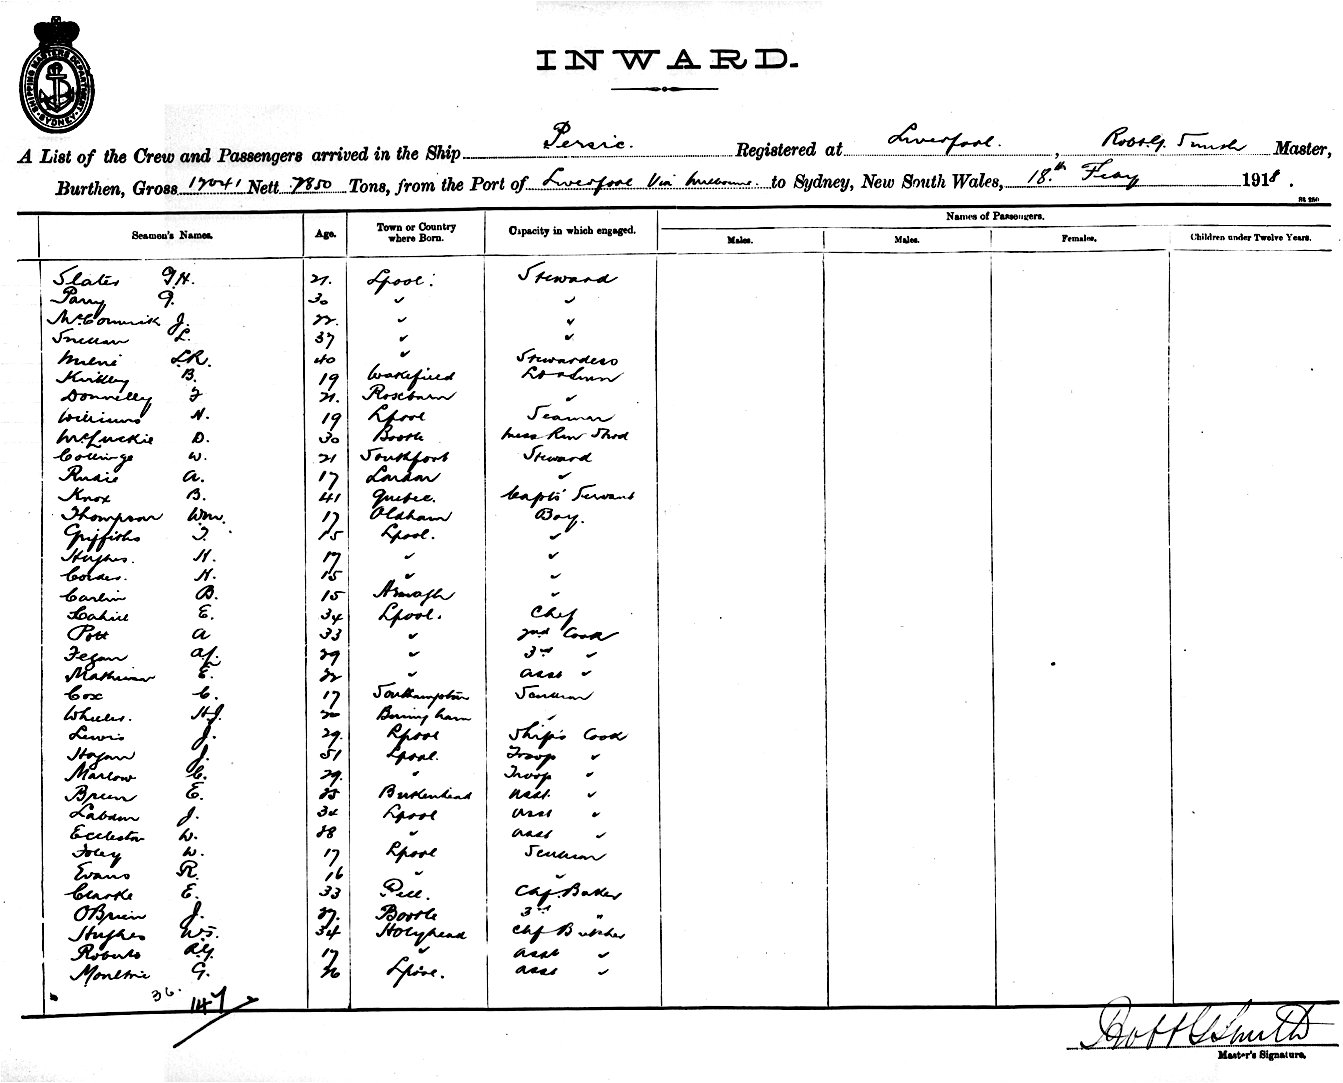 SHIPPING MASTERS DEPARTMENT SYDNEY
INWARD.
A List of the Crew and Passengers arrived in the Ship Persic. Registered at Liverpool. , Robt G. Smith Master,
Burthen, Gross 12041 Nett 7850 Tons, from the Port of Liverpool Via Melbourne. to Sydney, New South Wales, 18th Feby 1918.
Seamen's Names. Age. Town or Country where Born. Capacity in which engaged. Names of Passengers.
Males. Males. Females. Children under Twelve Years.
Slater 21. Lpool. Steward
Parry G. 30 " "
McCormick J. 22. " "
L. 37 " "
Milne L.R. 40 " Stewardess
B. 19 Wakefield
Donnelly 21. "
Williams H. 19 Lpool Seaman
McLuckie D. 30 Bootle Mess Rm Stwd
Collinge W. 21 Southport Steward
A. 17 London "
Knox B. 41 Quebec. Capts Servant
Thompson Wm. 17 Oldham Boy.
Griffiths 15 Lpool. "
Hughes. H. 17 " "
H. 15 " "
Carlin B. 15 Armagh "
Cahill E. 34 Lpool. Chef
Pott A 33 " 2nd Cook
Fegan 29 " 3rd "
E. 22 " Asst "
Cox C. 17 Southampton Scullion
H.J. 20 "
Lewis J. 29. Lpool Ship's Cook
Hogan J. 51 Lpool. Troop "
Marlow C. 29. " Troop "
E. Birkenhead Asst. "
J. 34 Lpool Asst "
Eccleston W. " Asst "
Foley W. 17 Lpool Scullion
Evans R. 16 " "
Clarke E. 33 Peel. Chf Baker
OBrien J. 27. Bootle 3rd "
Hughes W.S. 34 Holyhead Chf Butcher
Roberts 17 " Asst "
G. Lpool. Asst "
36.
147
Robt G Smith
Master's Signature.